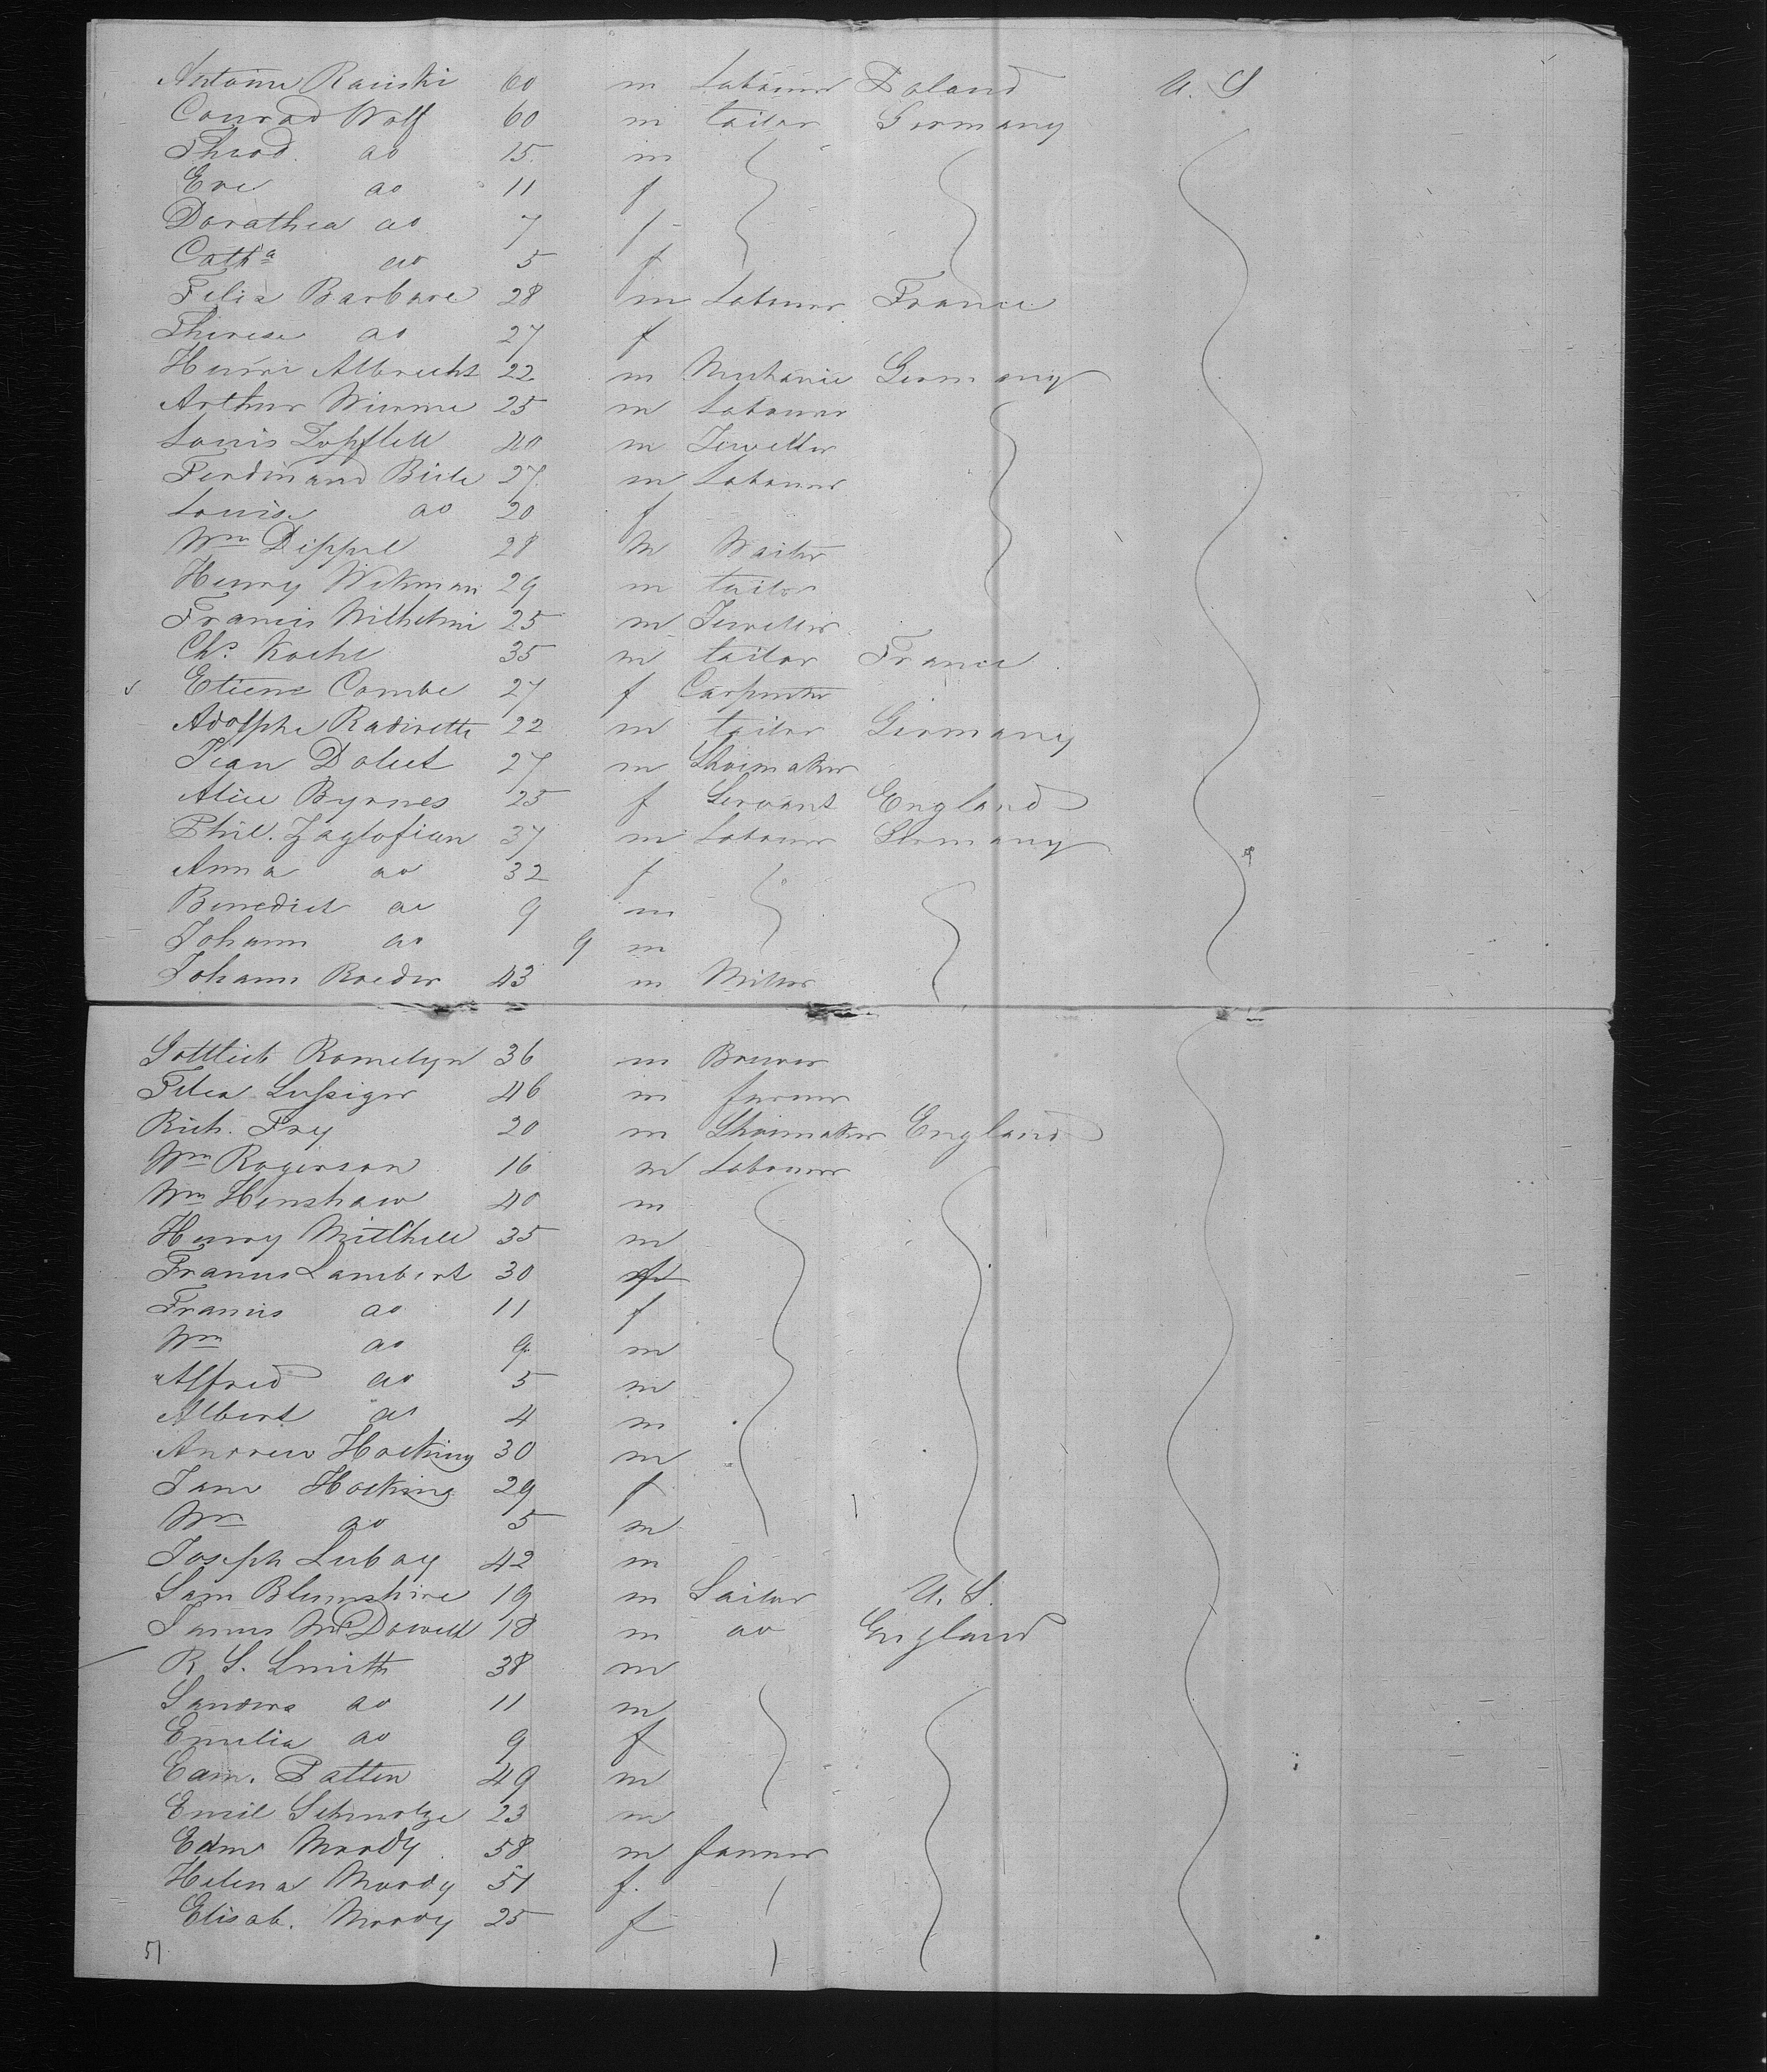 Antoine Rauski 60 m Labourer Poland U. S
Conrad Wolf 60 m tailor Germany
Theod. do 15 m
Eve do 11 f
Dorathea do 7 f
Cath<sup>a</sup> do 5 f
Felix Barbare 28 m Labourer France
Therese do 27 f
Henri Albrecht 22 m Mechanic Germany
Arthur Wimme 25 m Labourer
Louis 40 m Jeweller
Ferdinand Biele 27 m Labourer
Louise do 20 f
Wm Dippel 28 m Waiter
Henry Wikman 29 m tailor
Francis Wilhelmi 25 m Jeweller
Chs. Koehl 35 m tailor France
Etiene Combe 27 f Carpenter
Adolphe Radirette 22 m tailor Germany
Jean Dolest 27 m Shoemaker
Alice Byrnes 25 f Servant England
Phil. Zaglofian 37 m Labourer Germany
Anna do 32 f
Benedict do 9 m
Johann do 9 m
Johann Roeder 43 m Miller
Gottlieb Romelyn 36 m Brewer
Lussiger 46 m farmer
Rich. Fry 20 m Shoemaker England
Wm Rogerson 16 m Labourer
Wm Henshaw 40 m
Henry Mitchell 35 m
Frances Lambert 30
Francis do 11 f
Wm do 9 m
Alfred do 5 m
Albert do 4 m
Andrew Hocking 30 m
Jane Hocking 29 f
Wm do 5 m
Joseph Lubay 42 m
Sam Blumshire 19 m Sailor U. S.
James McDowell 18 m do England
R. S. Smith 38 m
Sandera do 11 m
Emelia do 9 f
Eam. Patten 49 m
Emil Schmolze 23 m
Edm Moody 58 m farmer
Helena Moody 51 f.
Elisab. Moody 25 f
51